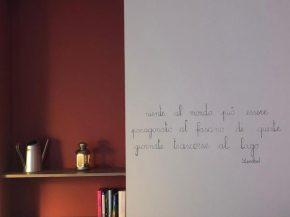 niente al mondo può essere
paragonato al fascino de queste
giornate trascorse al lago
Stendhal